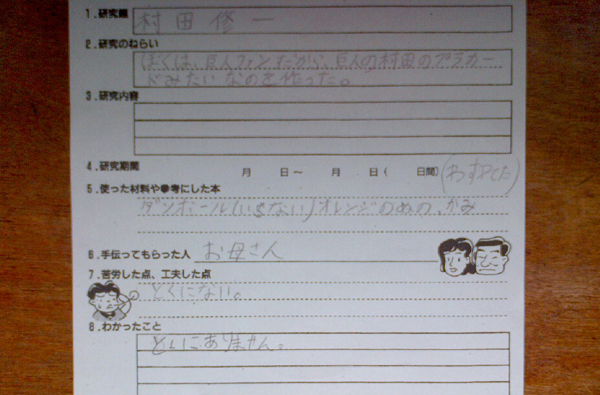 1.研究題 村田修一
2.研究のねらい
ぼくは、巨人ファンだから、巨人の村田のプラカー
ドみたいなのを作った。
3.研究内容
4.研究期間 月 日〜 月 日( 日間) (わすれた)
5.使った材料や参考にした本
ダンボール(いらない)オレンジのぬの、かみ
6.手伝ってもらった人 お母さん
7.苦労した点、工夫した点
とくにない。
8.わかったこと
とくにありません。